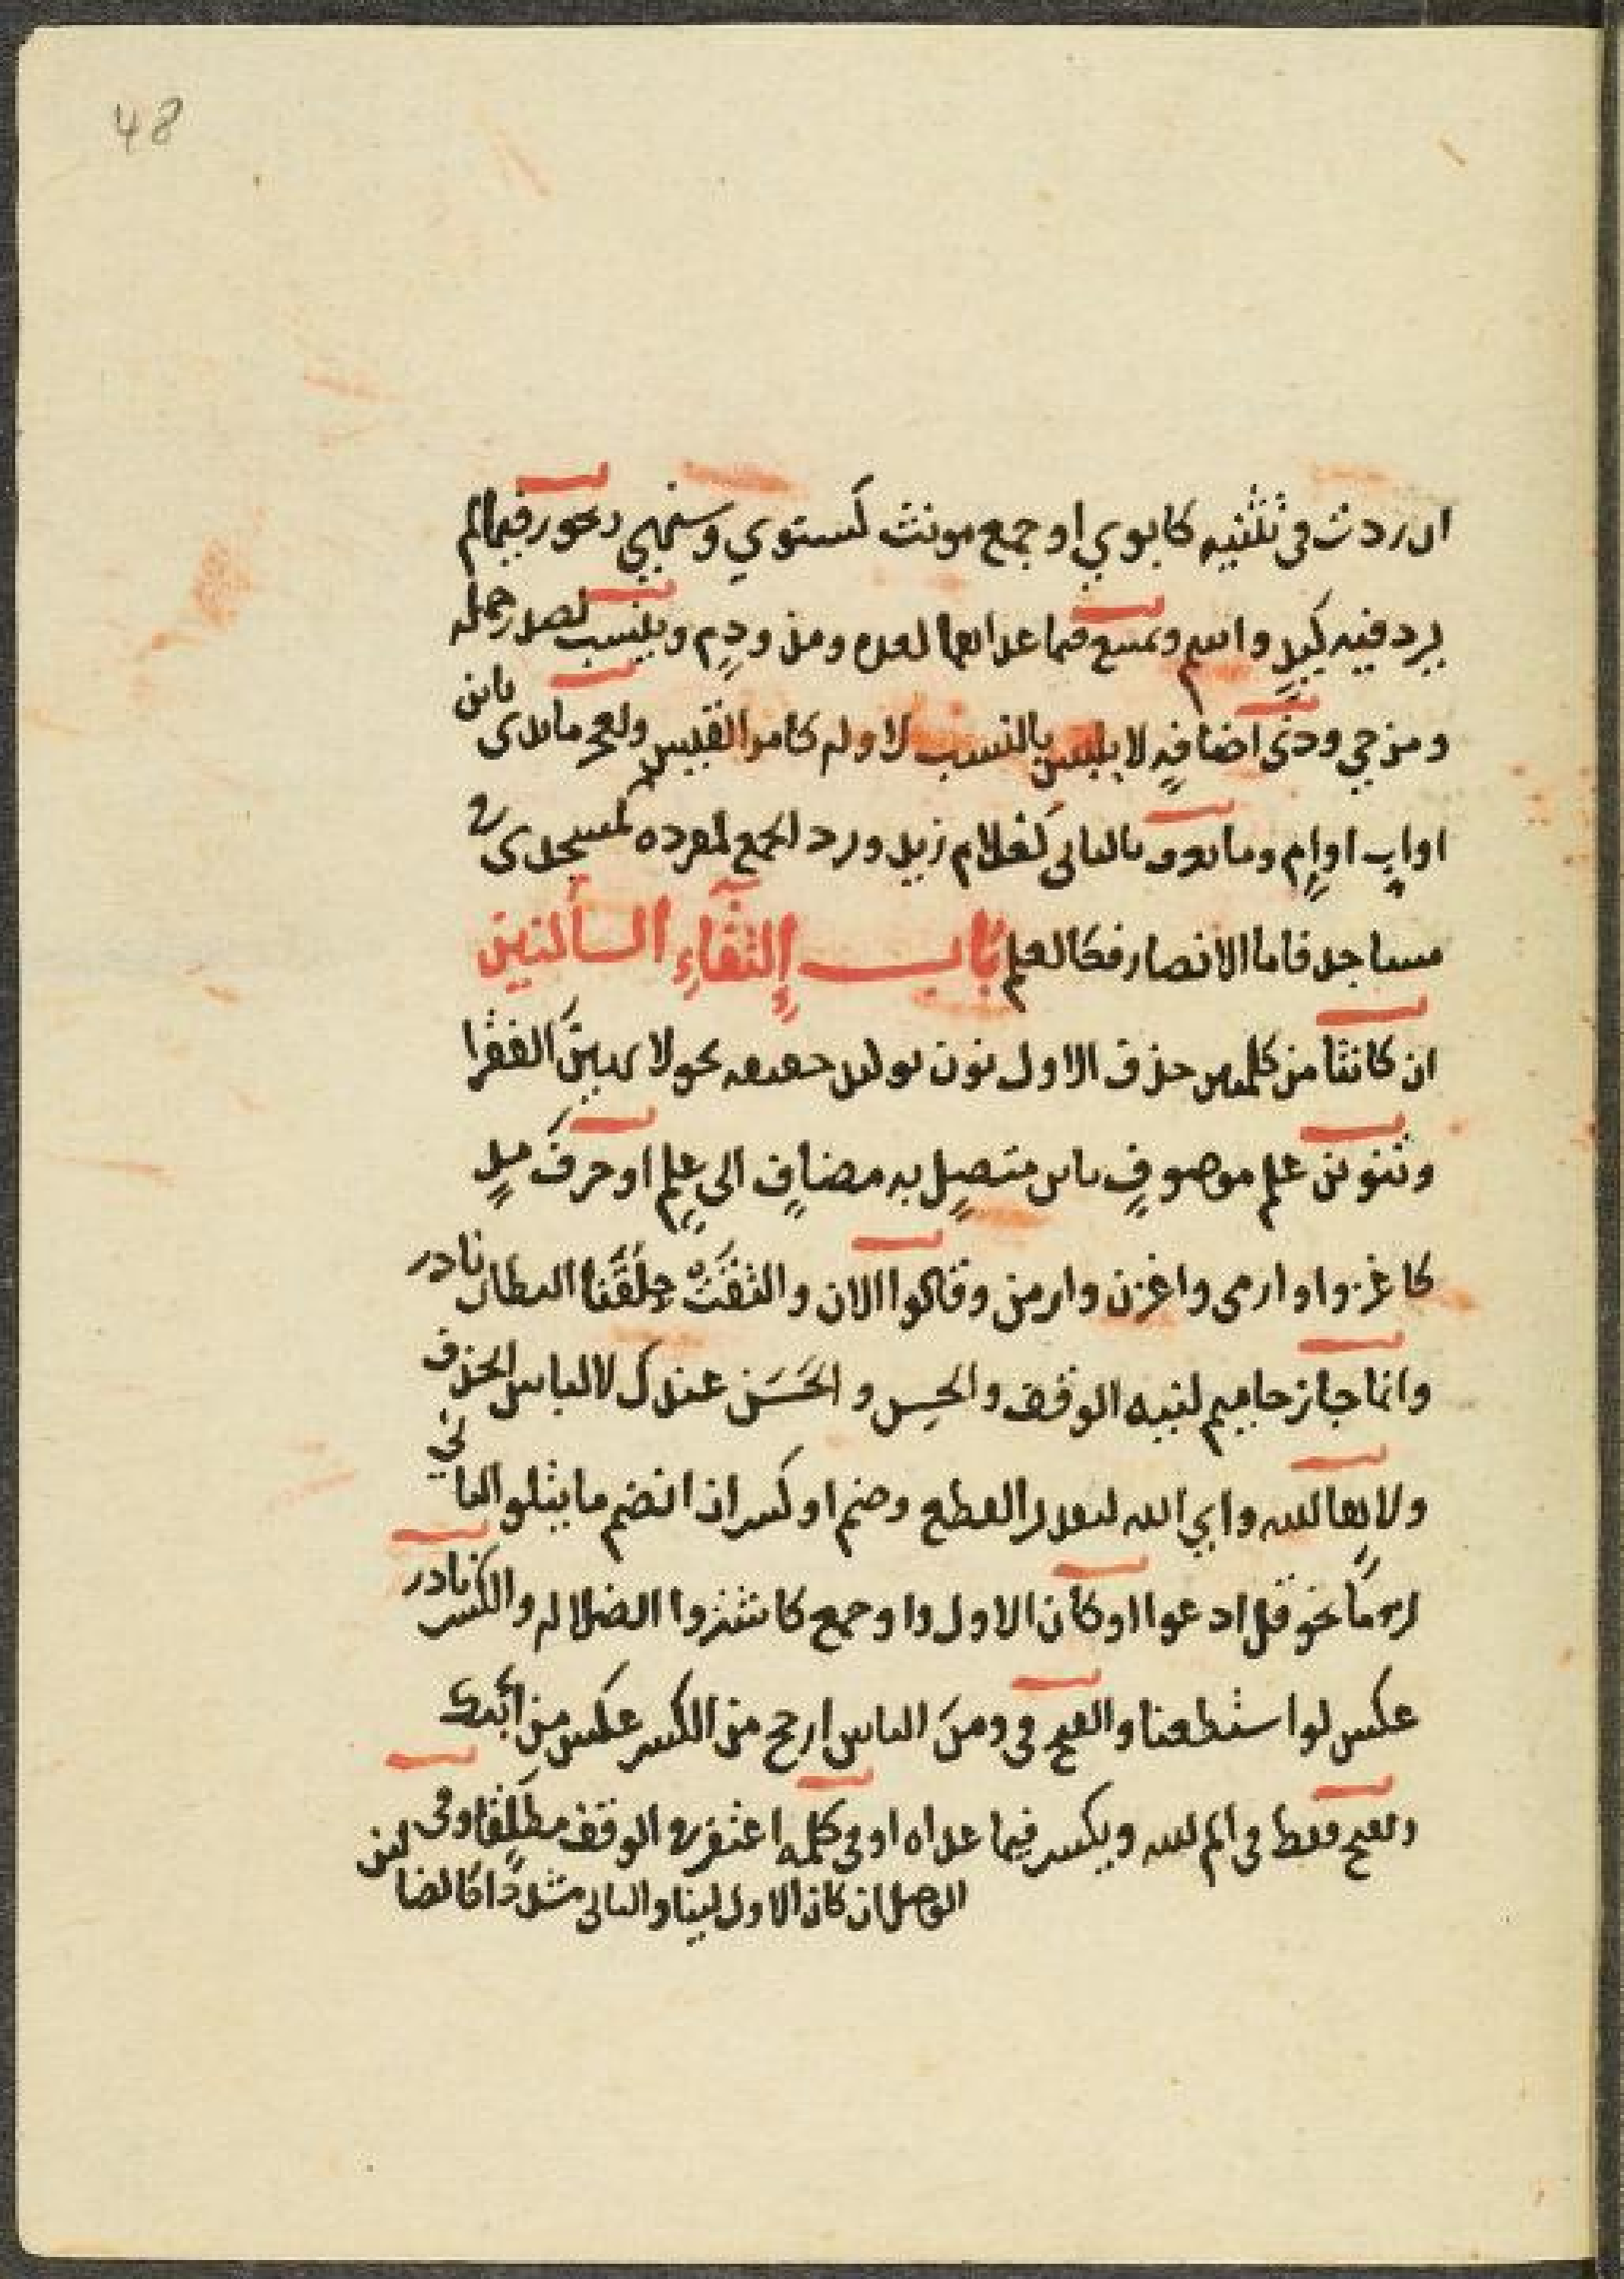 48
ان ردت في تثنيه كابوي او جمع مونث كستوي وسنهي ويجوز فيما لم
يرد فيه كيد واسم ويمتنع فيما عدا كعده ومن ودم وينسب لصدر جمله
ومزجي وذي اضافه لا يلبس بالنسب لاوله كامر القيس ولعجز ما بدى بابن
او اب او ام وما تعرف بالثاني كغلام زيد ورد الجمع لمفرده كمسجدى في
مساجد فاما الانصار فكالعلم باب إلتقاء الساكنين
ان كانتا من كلمتين حذف الاول نون توكيد خفيفه نحو لا تهين الفقرا
وتنوين علم موصوف بابن متصل به مضاف الى علم او حرف مد
كاغزوا وارمى واغزن وارمن وقالوا الان والتقت حلقتا البطان نادر
وانما جاز حاميم لنيه الوقف والحسن والحسن عندك لالباس الحذف
ولاها الله واي الله لتقدير القطع وضم او كسر ان انضم ما يتلو الثاني
لزوما نحو قل ادعوا او كان الاول واو جمع كاشتروا الضلاله والكسر نادر
عكس لو استطعنا والفتح في ومن الناس ارجح من الكسر عكس من ابنك
وفتح فقط في الم الله ويكسر فيما عداه او في كلمه اغتفر في الوقف مطلقا وفي
الوصل ان كان الاول لينا والثاني مشددا كالضالين